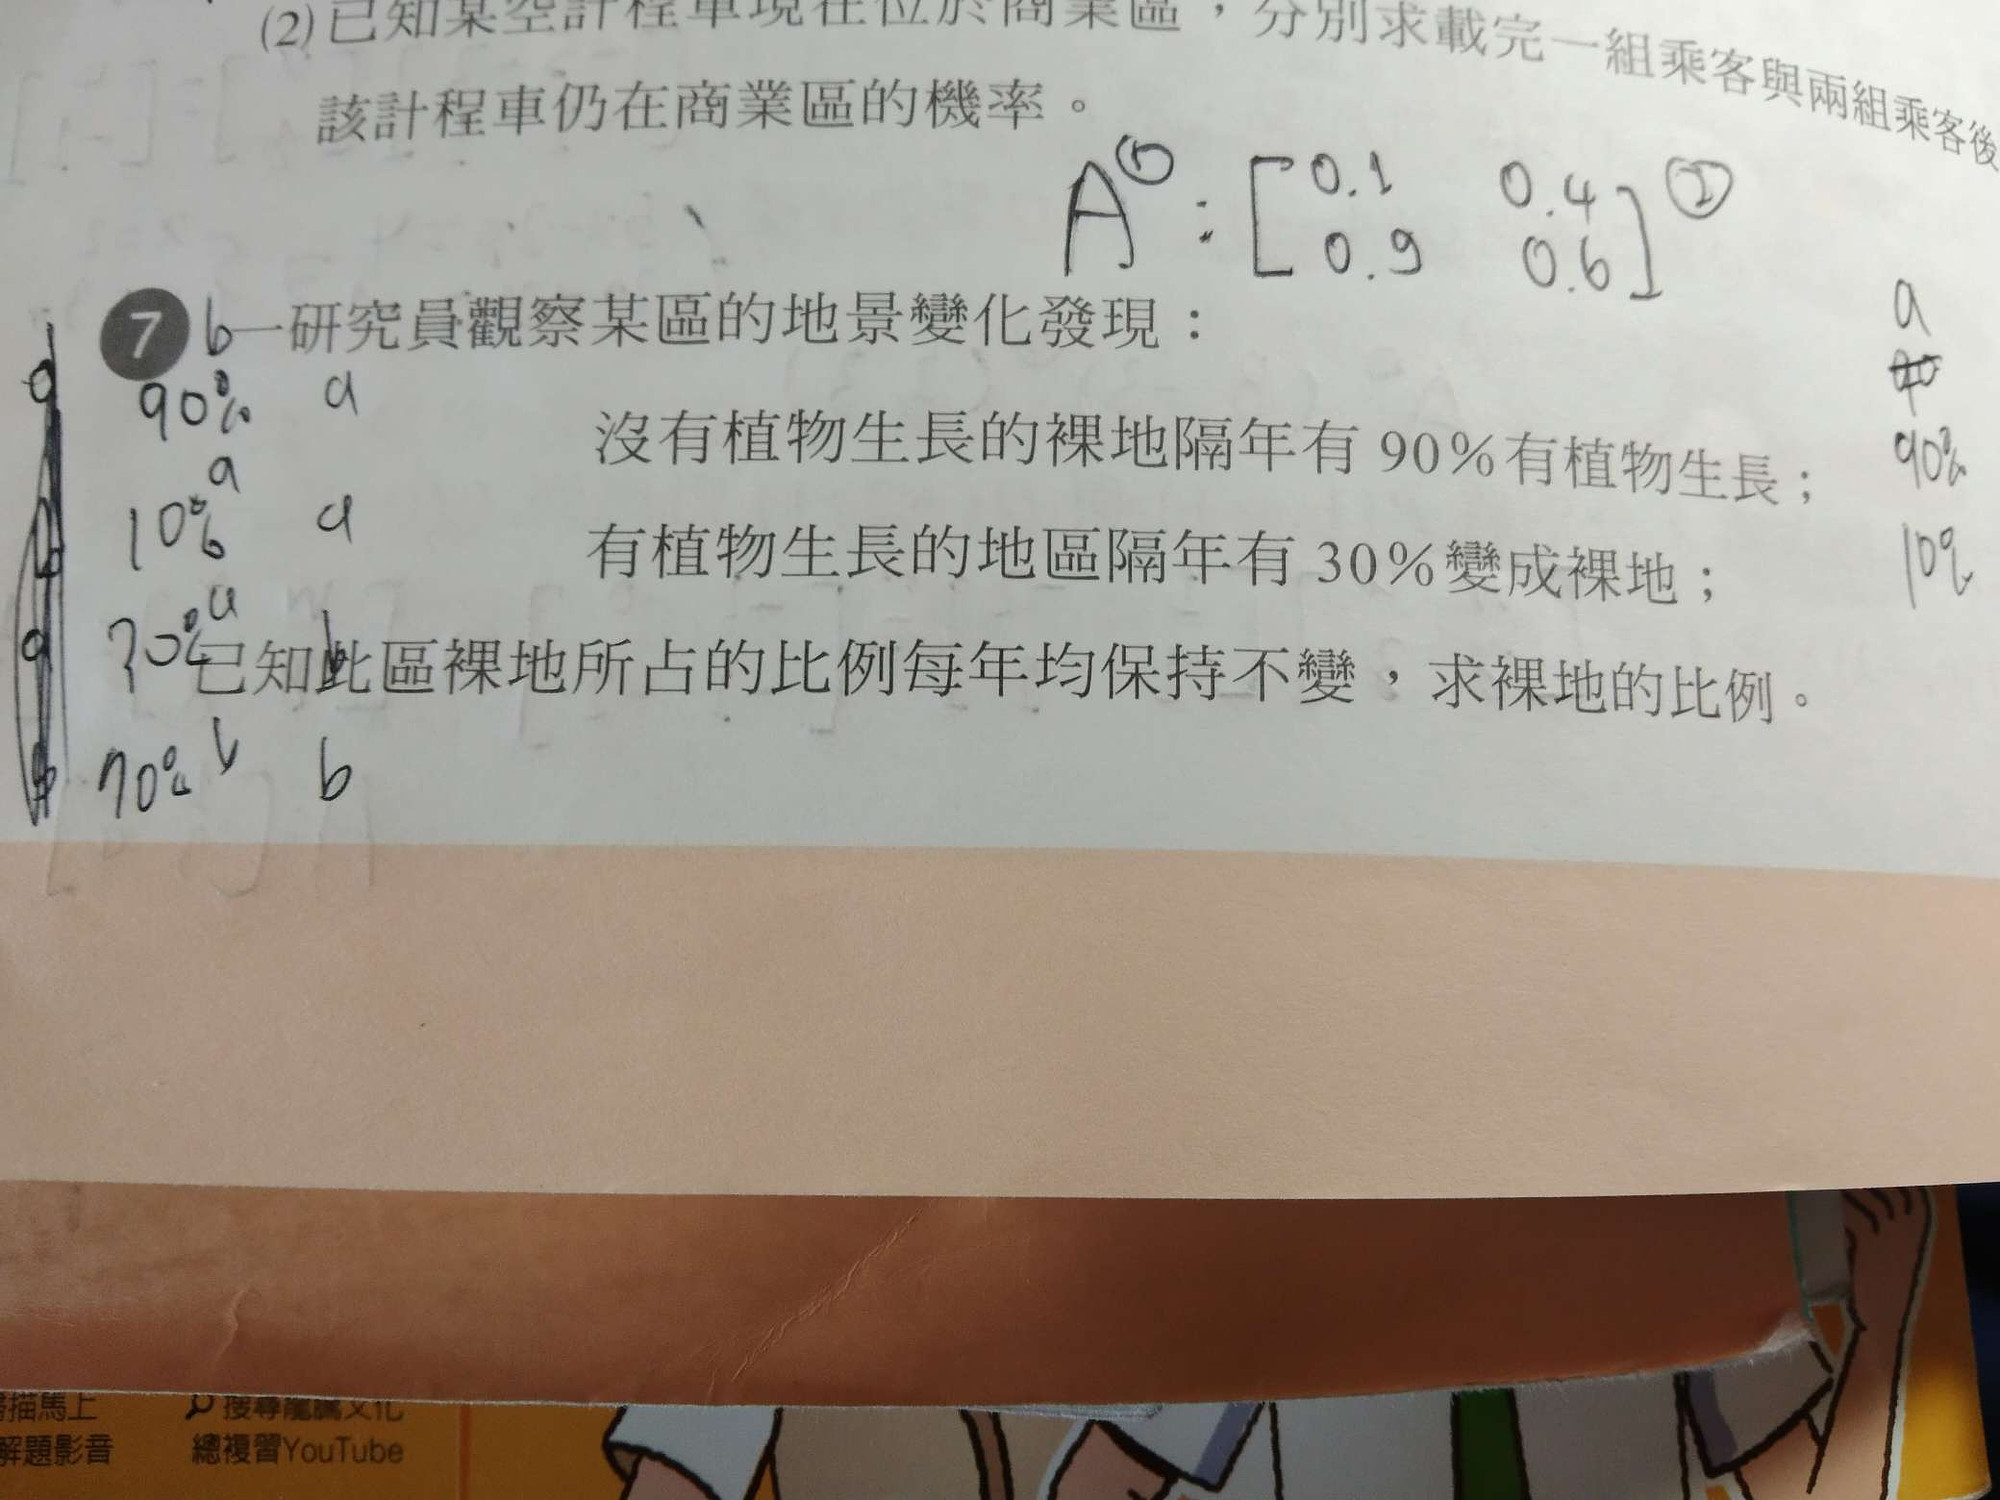 (2)已知某空計程車現在位於商業區，分別求載完一組乘客與兩組乘客後
該計程車仍在商業區的機率。
A① : [0.1 0.4
0.9 0.6] ②
7 b 一研究員觀察某區的地景變化發現：
a
90% a
沒有植物生長的裸地隔年有 90%有植物生長；
90%
a
10% a
b
有植物生長的地區隔年有 30%變成裸地；
10%
a
30% b
已知此區裸地所占的比例每年均保持不變，求裸地的比例。
70% b b
掃描馬上
搜尋龍騰文化
解題影音
總複習YouTube